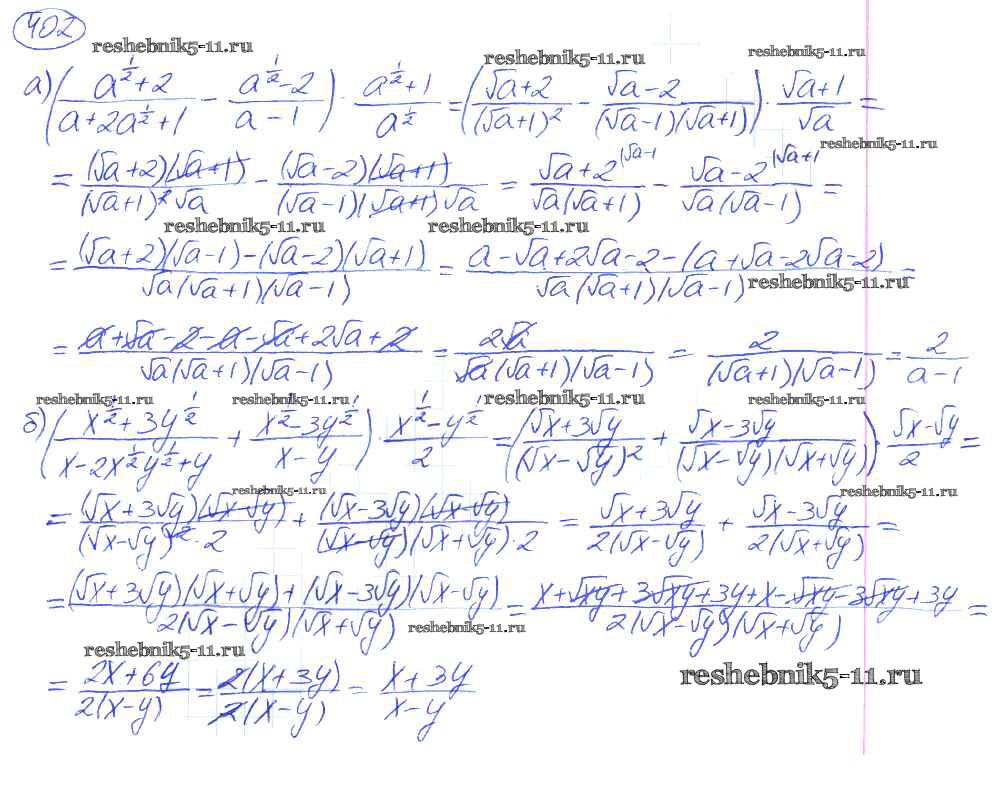 402
reshebnik5-11.ru reshebnik5-11.ru reshebnik5-11.ru
а) ((a^(1/2)+2)/(a+2a^(1/2)+1) - (a^(1/2)-2)/(a-1)) · (a^(1/2)+1)/a^(1/2) = ((√a+2)/(√a+1)^2 - (√a-2)/((√a-1)(√a+1))) · (√a+1)/√a =
reshebnik5-11.ru
= ((√a+2)(√a+1))/((√a+1)^2 √a) - ((√a-2)(√a+1))/((√a-1)(√a+1)√a) = (√a+2)^(|√a-1)/(√a(√a+1)) - (√a-2)^(|√a+1)/(√a(√a-1)) =
reshebnik5-11.ru reshebnik5-11.ru
= ((√a+2)(√a-1)-(√a-2)(√a+1))/(√a(√a+1)(√a-1)) = (a-√a+2√a-2-(a+√a-2√a-2))/(√a(√a+1)(√a-1)) =
reshebnik5-11.ru
= (a+√a-2-a-√a+2√a+2)/(√a(√a+1)(√a-1)) = 2√a/(√a(√a+1)(√a-1)) = 2/((√a+1)(√a-1)) = 2/(a-1)
reshebnik5-11.ru reshebnik5-11.ru reshebnik5-11.ru reshebnik5-11.ru
б) ((x^(1/2)+3y^(1/2))/(x-2x^(1/2)y^(1/2)+y) + (x^(1/2)-3y^(1/2))/(x-y)) · (x^(1/2)-y^(1/2))/2 = ((√x+3√y)/(√x-√y)^2 + (√x-3√y)/((√x-√y)(√x+√y))) · (√x-√y)/2 =
reshebnik5-11.ru reshebnik5-11.ru
= ((√x+3√y)(√x-√y))/((√x-√y)^2·2) + ((√x-3√y)(√x-√y))/((√x-√y)(√x+√y)·2) = (√x+3√y)/(2(√x-√y)) + (√x-3√y)/(2(√x+√y)) =
= ((√x+3√y)(√x+√y)+(√x-3√y)(√x-√y))/(2(√x-√y)(√x+√y)) = (x+√xy+3√xy+3y+x-√xy-3√xy+3y)/(2(√x-√y)(√x+√y)) =
reshebnik5-11.ru
reshebnik5-11.ru reshebnik5-11.ru
= (2x+6y)/(2(x-y)) = (2(x+3y))/(2(x-y)) = (x+3y)/(x-y)